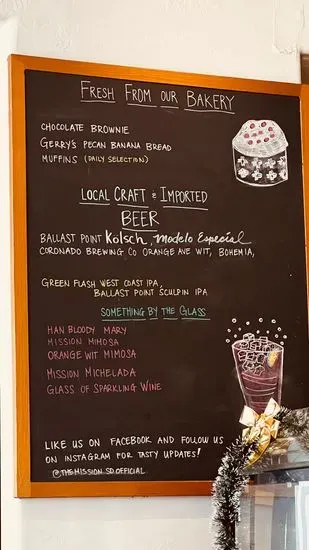 FRESH FROM OUR BAKERY
CHOCOLATE BROWNIE
GERRY'S PECAN BANANA BREAD
MUFFINS (DAILY SELECTION)
LOCAL CRAFT & IMPORTED
BEER
BALLAST POINT Kölsch, Modelo Especial
CORONADO BREWING CO ORANGE AVE WIT, BOHEMIA,
GREEN FLASH WEST COAST IPA,
BALLAST POINT SCULPIN IPA
SOMETHING BY THE GLASS
HAN BLOODY MARY
MISSION MIMOSA
ORANGE WIT MIMOSA
MISSION MICHELADA
GLASS OF SPARKLING WINE
LIKE US ON FACEBOOK AND FOLLOW US
ON INSTAGRAM FOR TASTY UPDATES!
@THEMISSION.SD.OFFICIAL